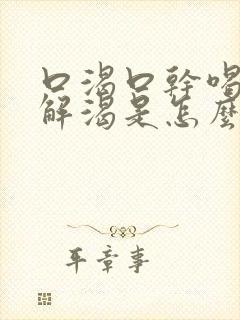 口渴口幹喝
解渴是怎麼
平章事